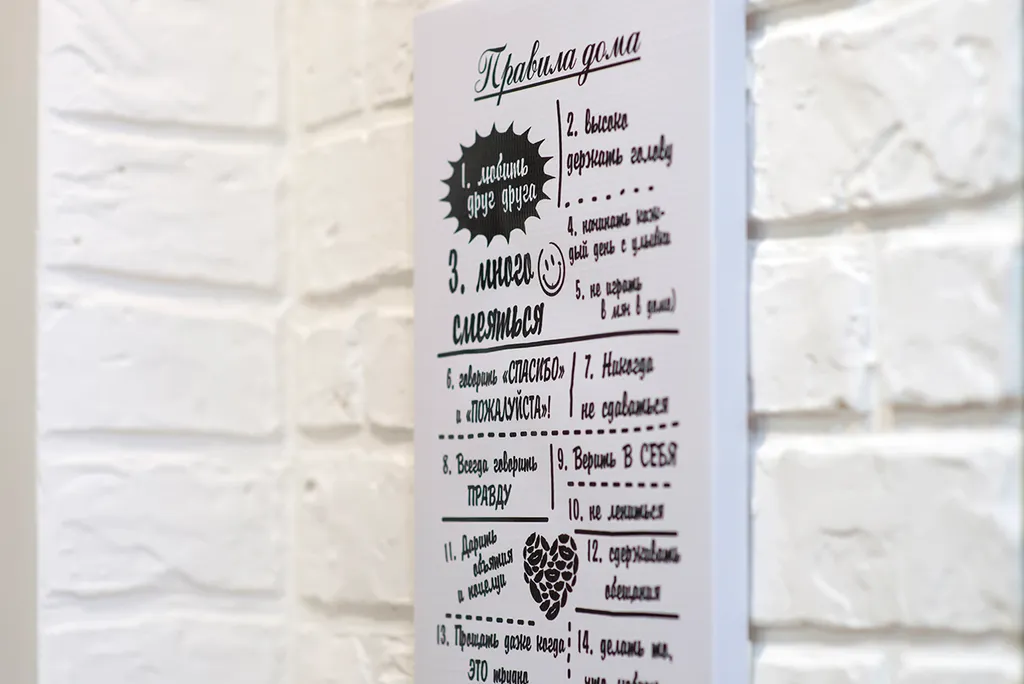 Правила дома
1. любить
друг друга
2. высоко
держать голову
3. много
смеяться
4. начинать каж-
дый день с улыбки
5. не играть
в мяч в доме)
6. говорить «СПАСИБО»
и «ПОЖАЛУЙСТА»!
7. Никогда
не сдаваться
8. Всегда говорить
ПРАВДУ
9. Верить В СЕБЯ
10. не лениться
11. Дарить
объятия
и поцелуи
12. сдерживать
обещания
13. Прощать даже когда
ЭТО трудно
14. делать то,
что